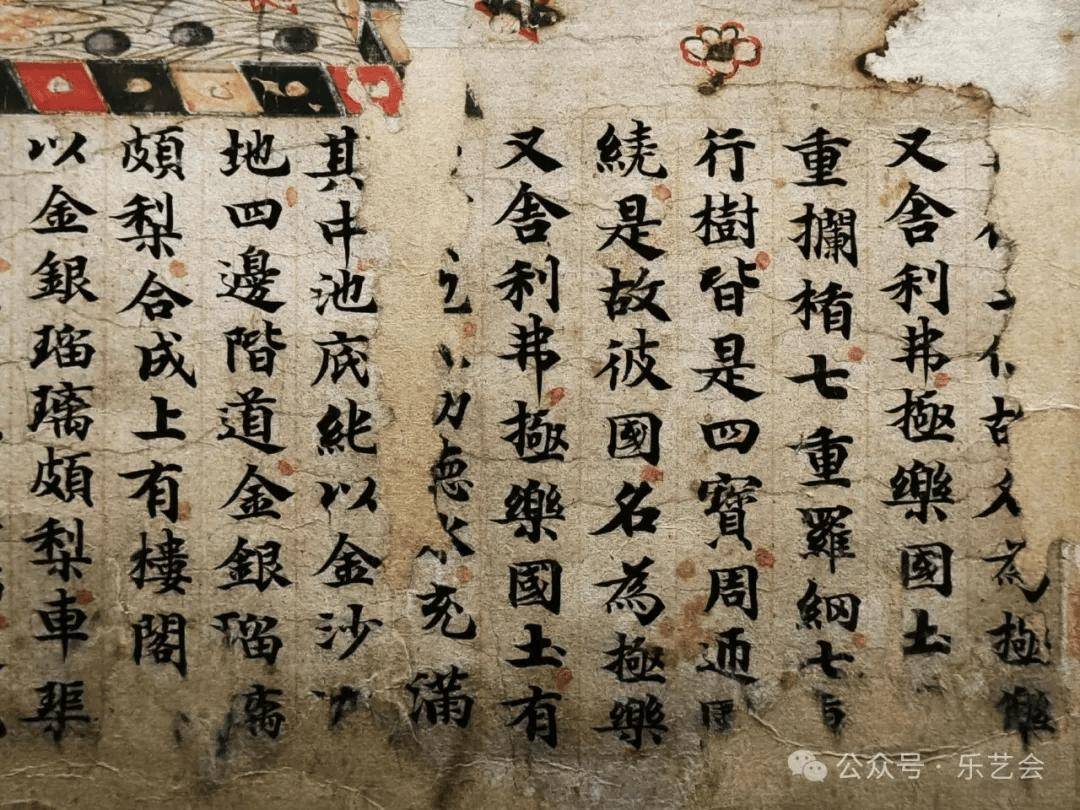 故名為極樂
又舍利弗極樂國土
重攔楯七重羅網七重
行樹皆是四寳周迊
繞是故彼國名為極樂
又舍利弗極樂國土有
功德水充滿
其中池底純以金沙
地四邊階道金銀瑠璃
頗梨合成上有樓閣
以金銀瑠璃頗梨車渠
公众号·乐艺会